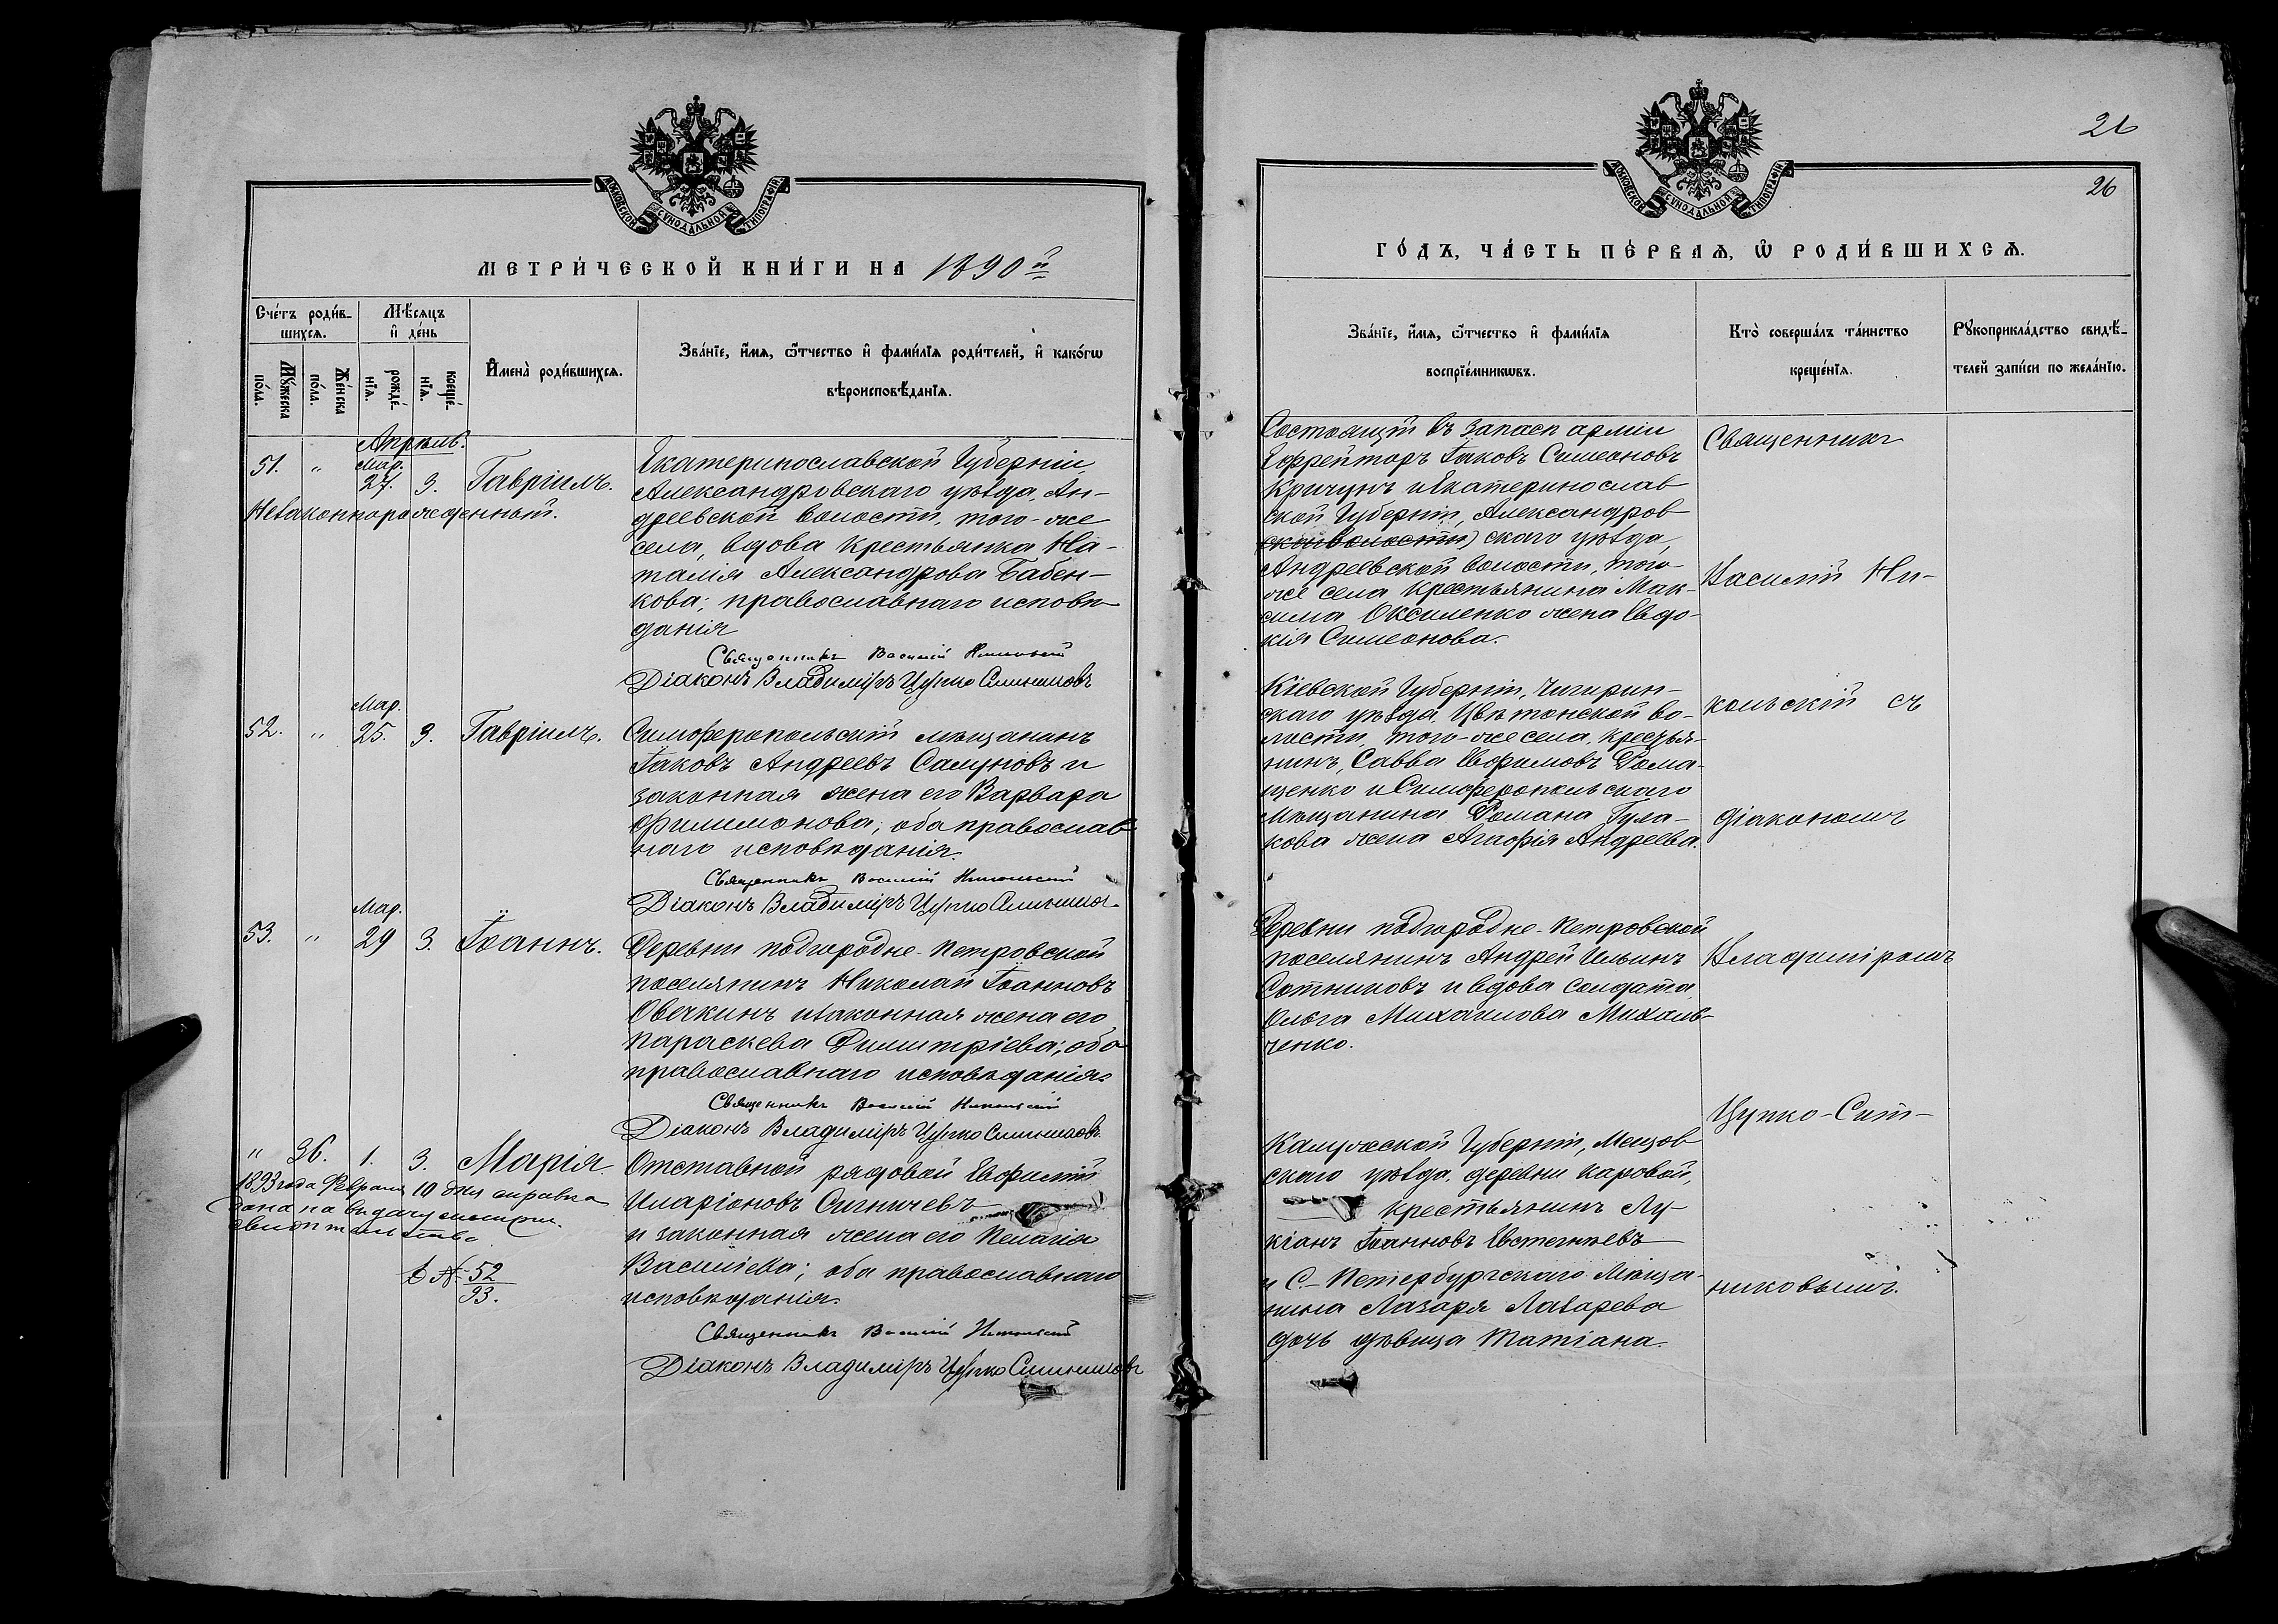 МОСКОВСКОЙ СѴНОДАЛЬНОЙ ТИПОГРАФІИ.
МЕТРИ́ЧЕСКОЙ КНИ́ГИ НА 1890й
Сче́тъ роди́в-
шихсѧ.
Мꙋ́жеска
по́ла.
Же́нска
по́ла.
Мѣ́сѧцъ
и҆ де́нь
рожде́-
нїѧ.
креще́-
нїѧ.
И҆мена̀ роди́вшихсѧ.
Зва́нїе, и҆́мѧ, ѻ҆́тчество и҆ фами́лїѧ роди́телей, и҆ како́гѡ
вѣроисповѣ́данїѧ.
Апрѣль.
51. " Мар. 27. 3. Гавріилъ.
Незаконнорожденный.
Екатеринославской Губерніи,
Александровскаго уѣзда, Ан-
дреевской волости, того-же
села, вдова крестьянка На-
талія Александрова Бабен-
кова; православнаго исповѣ
данія
Священникъ Василій Никольскій
Діаконъ Владиміръ Цупко Ситниковъ
52. " Мар. 25. 3. Гавріилъ.
Симферопольскій мѣщанинъ
Іаковъ Андреевъ Самуновъ и
законная жена его Варвара
Филимонова; оба православ
наго исповѣданія.
Священникъ Василій Никольскій
Діаконъ Владиміръ Цупко Ситниковъ
53. " Мар. 29 3. Іоаннъ.
Деревни подгородне-Петровской
поселянинъ Николай Іоанновъ
Овечкинъ и законная жена его
Параскева Димитріева; оба
православнаго исповѣданія.
Священникъ Василій Никольскій
Діаконъ Владиміръ Цупко Ситниковъ.
" 36. 1. 3. Марія
1893 года Февраля 10 дня справка
дана на выдачу метрич.
свидѣтельства
№ 52
93.
Отставной рядовой Евфимій
Иларіоновъ Сигничевъ
и законная жена его Пелагія
Васильева; оба православнаго
исповѣданія.
Священникъ Василій Никольскій
Діаконъ Владиміръ Цупко Ситниковъ
26
26
МОСКОВСКОЙ СѴНОДАЛЬНОЙ ТИПОГРАФІИ.
ГО́ДЪ, ЧА́СТЬ ПЕ́РВАѦ, Ѡ҆ РОДИ́ВШИХСѦ.
Зва́нїе, и҆́мѧ, ѻ҆́тчество и҆ фами́лїѧ
воспрїе́мникѡвъ.
Кто̀ соверша́лъ та́инство
креще́нїѧ.
Рꙋкоприкла́дство свидѣ́-
телей за́писи по жела́нїю.
Состоящій въ запасѣ арміи
Ефрейторъ Іаковъ Симеоновъ
Кричунъ и Екатеринослав
ской Губерніи, Александров
(ской волости) скаго уѣзда,
Андреевской волости, того-
же села крестьянина Мак-
сима Оксиленко жена Евдо-
кія Симеонова.
Кіевской Губерніи, Чигирин-
скаго уѣзда, Цвѣтонской во-
лости, того-же села, крестья-
нинъ, Савва Евфимовъ Рома-
щенко и Симферопольскаго
Мѣщанина Романа Гула-
кова жена Агафія Андреева.
Деревни подгородне-Петровской
поселянинъ Андрей Ильинъ
Сотниковъ и вдова солдата
Ольга Михаилова Михаль-
ченко.
Калужской Губерніи, Мещов
скаго уѣзда, деревни Каровой,
крестьянинъ Лу
кіанъ Іоанновъ Евстегнѣевъ
и С-Петербургскаго Мѣща-
нина Лазаря Лазарева
дочь дѣвица Татіана.
Священникъ
Василій Ни-
кольскій съ
діакономъ
Владиміромъ
Цупко-Сит-
никовымъ.